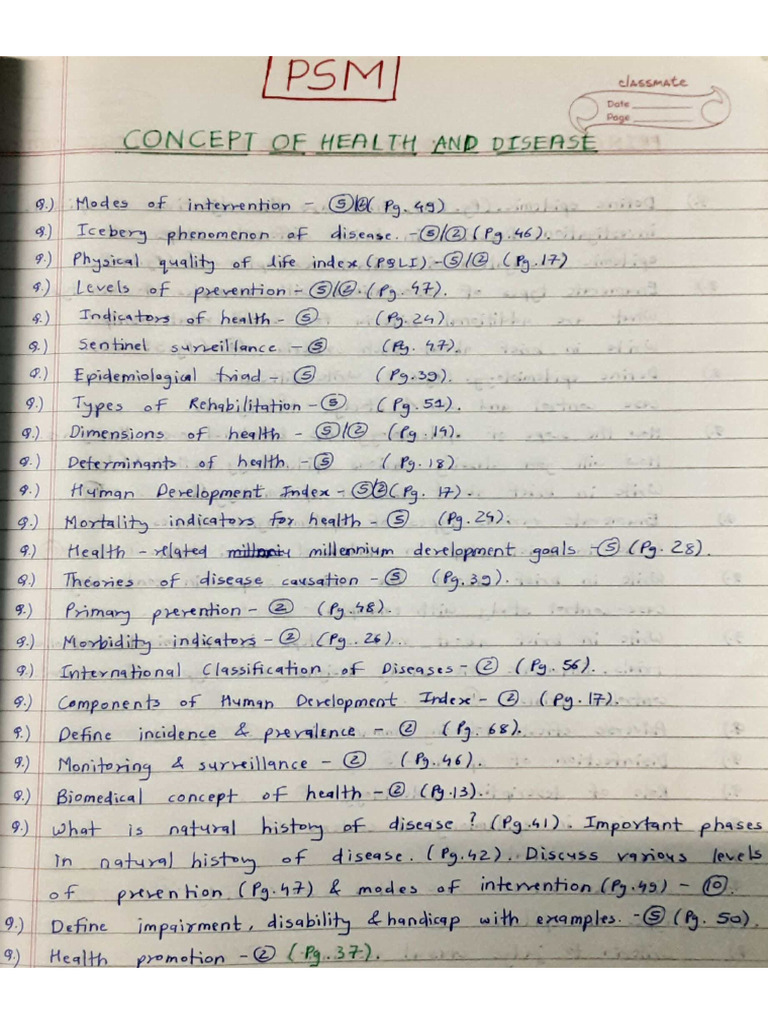 PSM
classmate
Date
Page
CONCEPT OF HEALTH AND DISEASE
Q.) Modes of intervention - (5)/(2) (Pg. 49)
Q) Iceberg phenomenon of disease. - (5)/(2) (Pg. 46).
Q.) Physical quality of life index (PQLI) - (5)/(2) (Pg. 17)
Q.) Levels of prevention - (5)/(2). (Pg. 47).
Q.) Indicators of health - (5) (Pg. 24)
Q.) Sentinel surveillance - (5) (Pg. 47).
Q.) Epidemiological triad - (5) (Pg. 39).
Q.) Types of Rehabilitation - (5) (Pg. 51).
Q.) Dimensions of health - (5)/(2) (Pg. 14).
Q.) Determinants of health. - (5) (Pg. 18)
Q.) Human Development Index - (5)/(2) (Pg. 17).
Q.) Mortality indicators for health - (5) (Pg. 24).
Q.) Health - related millennium development goals - (5) (Pg. 28).
Q.) Theories of disease causation - (5) (Pg. 39).
Q.) Primary prevention - (2) (Pg. 48).
Q.) Morbidity indicators - (2) (Pg. 26).
Q.) International Classification of Diseases - (2) (Pg. 56).
Q.) Components of Human Development Index - (2) (Pg. 17).
Q.) Define incidence & prevalence - (2) (Pg. 68).
Q.) Monitoring & surveillance - (2) (Pg. 46).
Q.) Biomedical concept of health - (2) (Pg. 13).
Q.) What is natural history of disease? (Pg. 41). Important phases
in natural history of disease. (Pg. 42). Discuss various levels
of prevention (Pg. 47) & modes of intervention (Pg. 49) - (10).
Q.) Define impairment, disability & handicap with examples. - (5) (Pg. 50).
Q.) Health promotion - (2) (Pg. 37).